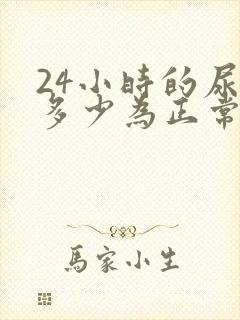 24小時的尿
多少為正常
馬家小生